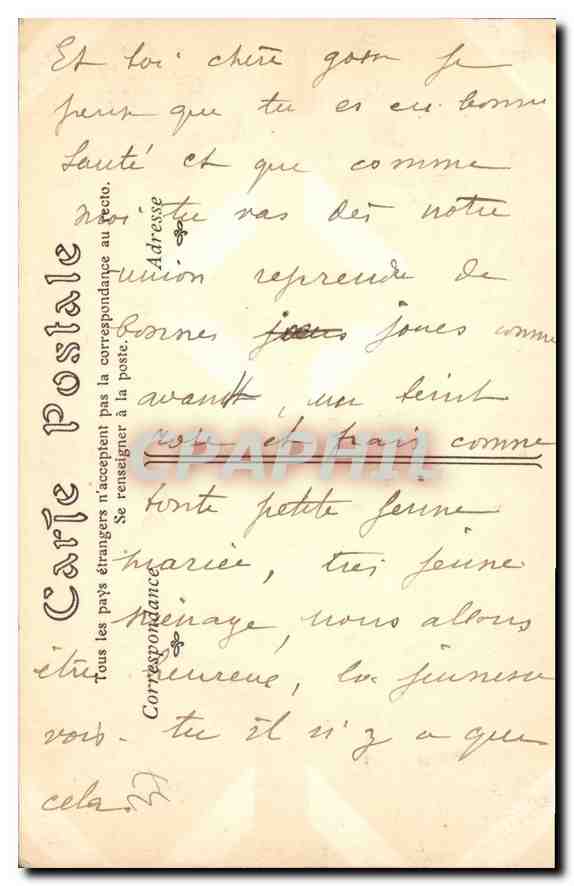 Et toi chère je
peux que tu es en bonne
Santé et que comme
moi tu vas dès notre
union reprendre de
bonnes joues comme
avant, un teint
rose et frais comme
toute petite jeune
mariée, très jeune
ménage, nous allons
être heureux, la jeunesse
vois-tu il n'y a que
cela
Carte Postale
Tous les pays étrangers n'acceptent pas la correspondance au recto.
Se renseigner à la poste.
Correspondance
Adresse
CPAPHIL